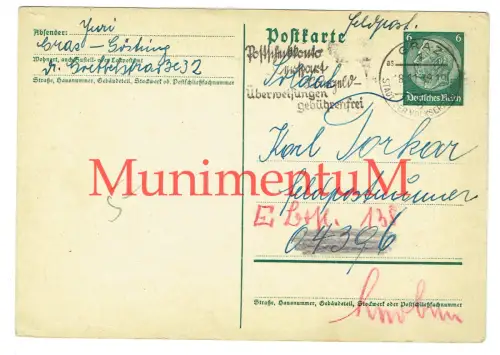 Absender: Juri
Gras-Gösting
Wohnort, auch Zustell- oder Leitpostamt
Dr. Goettelstraße 32
Straße, Hausnummer, Gebäudeteil, Stockwerk od. Postschließfachnummer
Postkarte
Feldpost.
6 6
Deutsches Reich
GRAZ
Postscheckkonto
spart
Bargeld-
Überweisungen
gebührenfrei
Soldat
Karl Torkar
Feldpostnummer
04396
MunimentuM
Straße, Hausnummer, Gebäudeteil, Stockwerk oder Postschließfachnummer